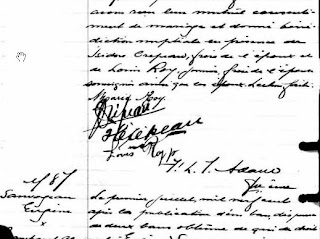 mon vu leur mutuel consente-
ment de mariage et donné béné-
diction nuptiale en présence de
Isidore Crepeau, frère de l'époux et
de Louis Roy, frère de l'épouse
soussignés avec les époux. Lecture faite.
Maria Roy
J Crepeau
I Crepeau
Louis Roy
F. L. T. Adam
Ptre curé
M 87
Eugène
x
Le premier juillet, mil neuf cent
après la publication d'un ban, dispense
de deux bans obtenue de qui de droit